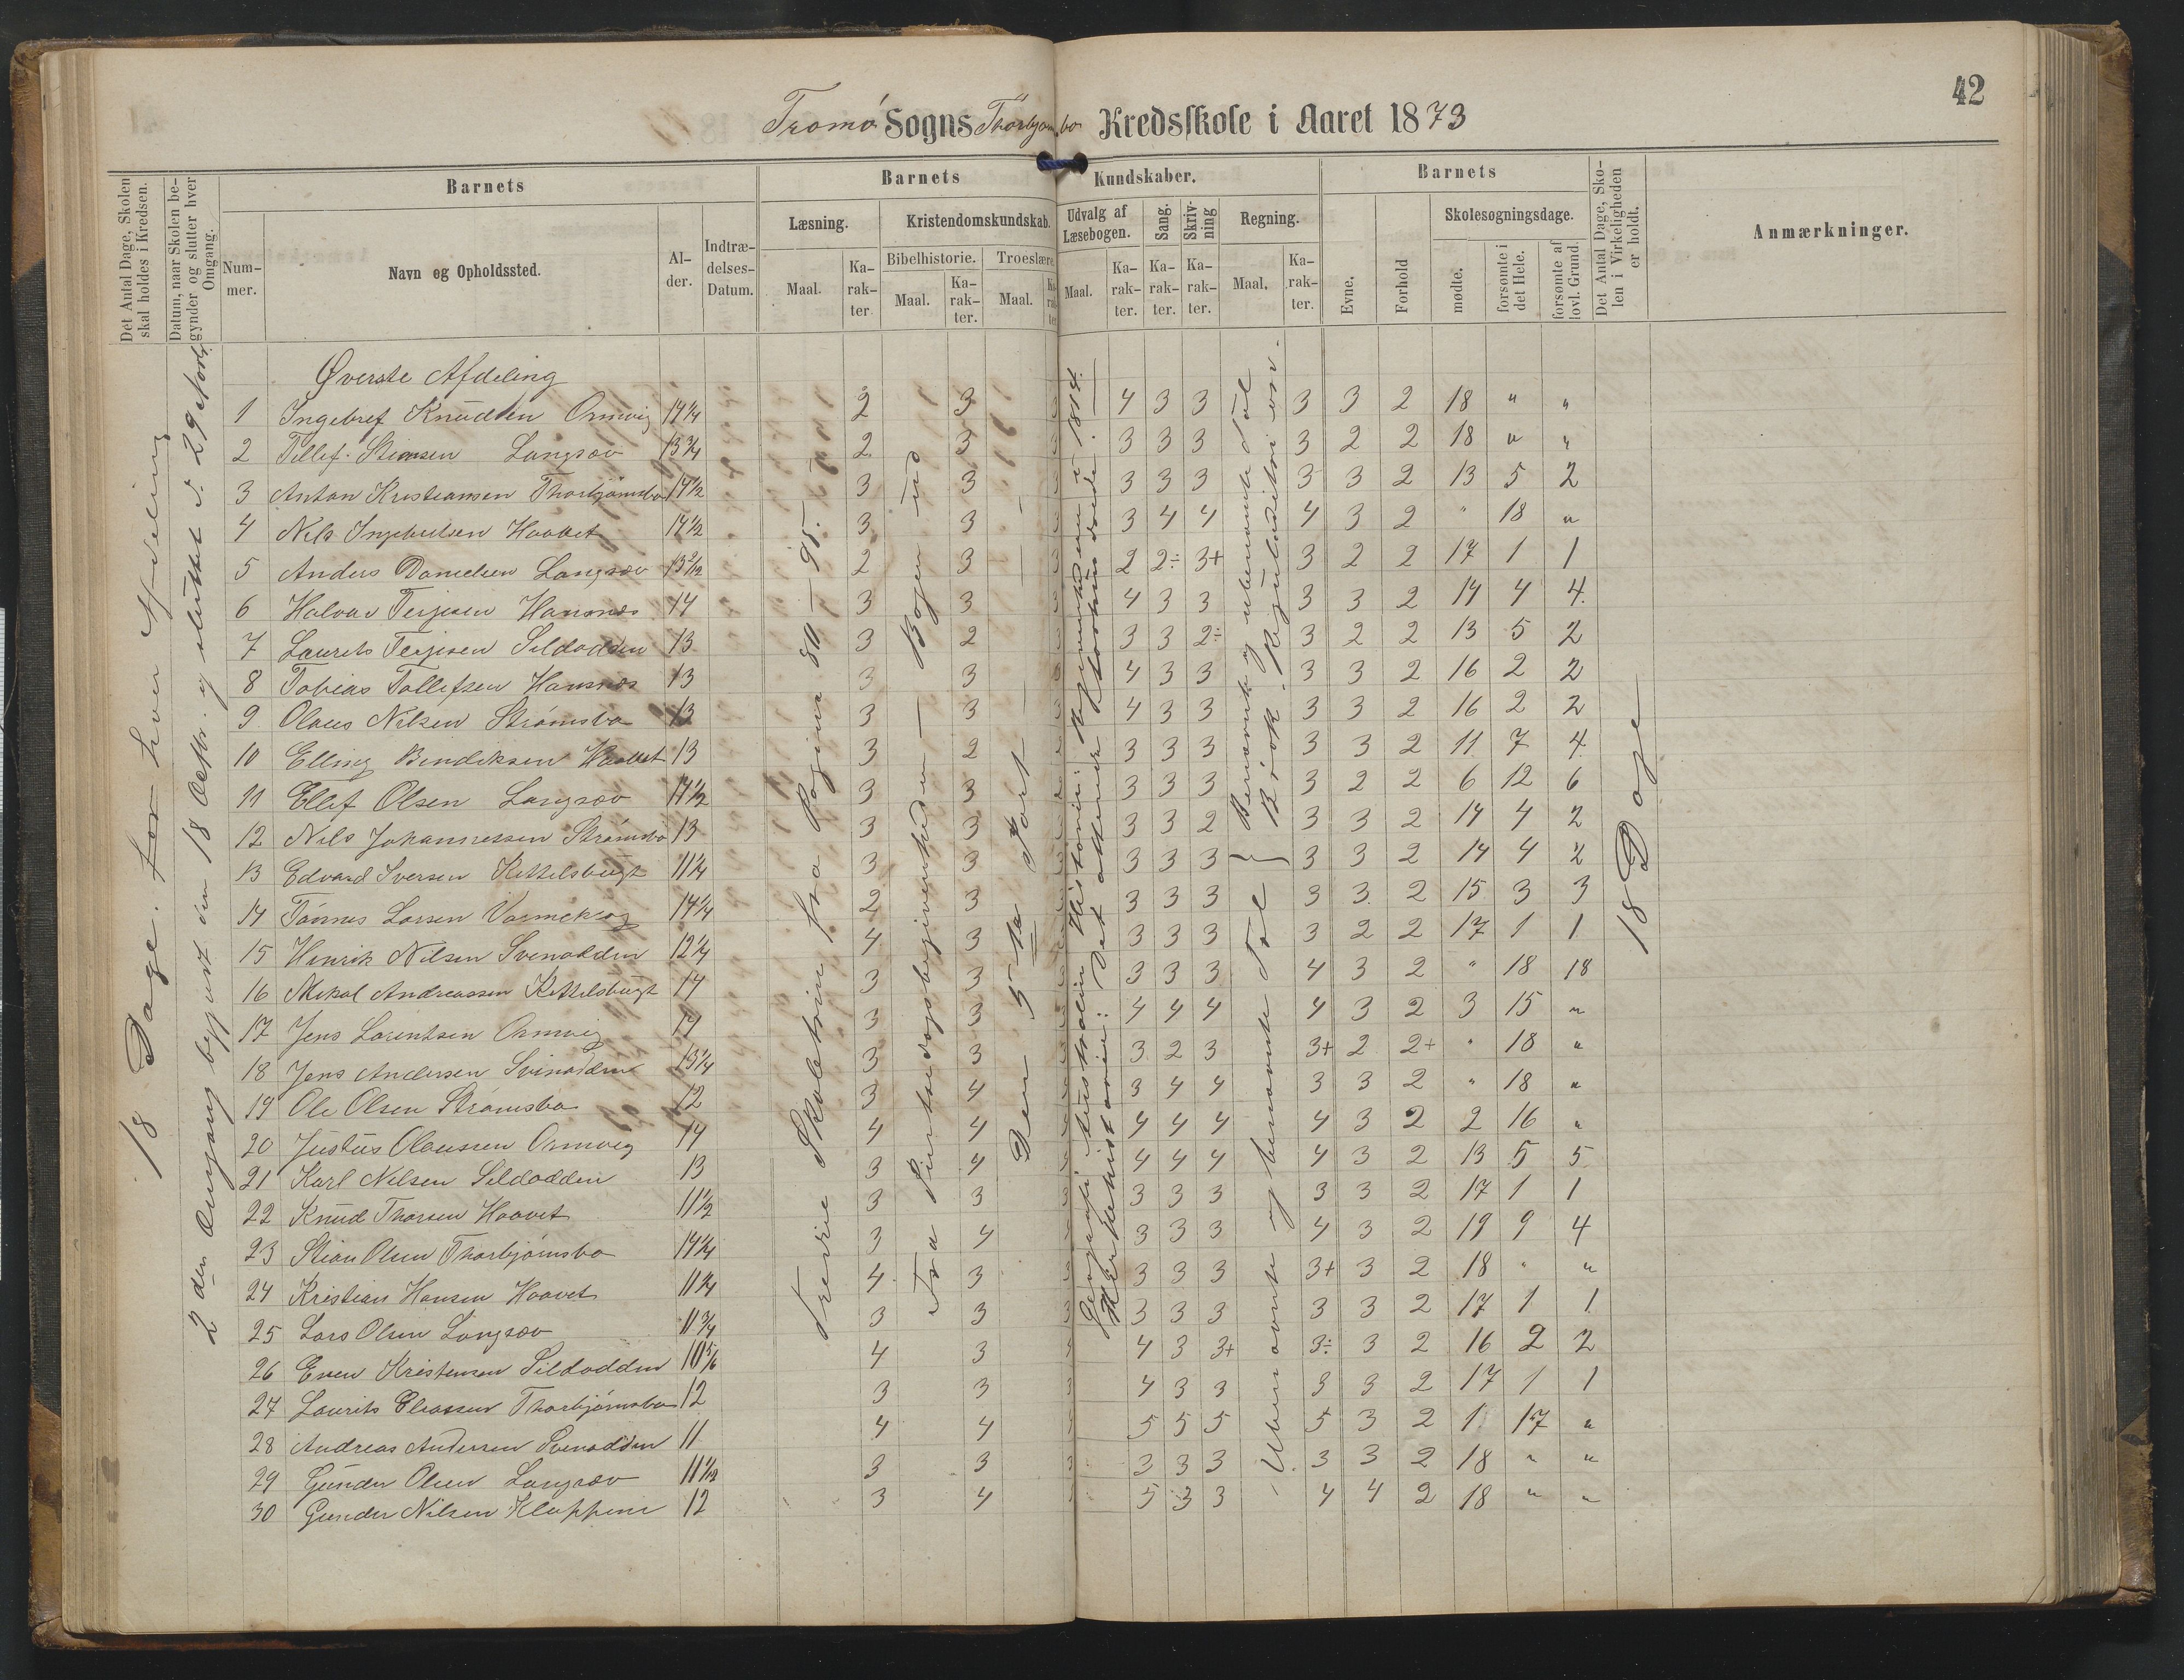 42
Tromö Sogns Thorbjørnsbo Kredsskole i Aaret 1873
Det Antal Dage, Skolen skal holdes i Kredsen.
Datum, naar Skolen begynder og slutter hver Omgang.
Barnets
Num-
mer.
Navn og Opholdssted.
Al-
der.
Indtræ-
delses-
Datum.
Barnets Kundskaber.
Læsning.
Maal.
Ka-
rak-
ter
Kristendomskundskab.
Bibelhistorie.
Maal.
Ka-
rak-
ter.
Troeslære
Maal.
Udvalg af
Læsebogen.
Maal.
Ka-
rak-
ter.
Sang.
Ka-
rak-
ter.
Skriv-
ning
Ka-
rak-
ter.
Regning.
Maal.
Ka-
rak-
ter.
Barnets
Evne.
Forhold
Skolesøgningsdage.
mødte.
forsømte i
det Hele.
forsømte af
lovl. Grund.
Det Antal Dage, Sko-
len i Virkeligheden
er holdt.
Anmærkninger.
18 Dage for hver Afdeling
2den Omgang begyndt den 18 Octbr. og sluttet d. 29 Novb.
Øverste Afdeling
1 Ingebref Knudsen Ormvig 14 1/4 2 3 3 4 3 3 3 3 2 18 " "
2 Tellef Stiansen Langsæv 13 3/4 2 3 3 3 3 3 3 2 2 18 " "
3 Anton Kristiansen Thorbjørnsbo 14 1/2 3 3 3 3 3 3 3 3 2 13 5 2
4 Nils Ingebretsen Haavet 14 1/2 3 3 3 3 4 4 4 3 2 " 18 "
5 Anders Danielsen Langsæv 2 3 2 2÷ 3+ 3 2 2 17 1 1
6 Halvor Terjesen Hansnæs 14 3 3 3 4 3 3 3 3 2 14 4 4
7 Laurits Terjesen Sildodden 13 3 2 3 3 3 2÷ 3 2 2 13 5 2
8 Tobias Tollefsen Hansnæs 13 3 3 3 4 3 3 3 3 2 16 2 2
9 Olaus Nilsen Strømsbo 13 3 3 3 4 3 3 3 3 2 16 2 2
10 Elling Bendiksen Haavet 13 3 2 3 3 3 3 3 2 11 7 4
11 Ellef Olsen Langsæv 14 1/2 3 3 3 3 3 3 2 2 6 12 6
12 Nils Johannessen Strømsbo 13 3 3 3 3 2 3 3 2 14 4 2
13 Edvard Iversen Kittelsbugt 11 1/4 3 3 3 3 3 3 3 2 14 4 2
14 Tønnes Larsen Varmekrog 14 1/4 2 3 3 3 3 3 3 2 15 3 3
15 Henrik Nilsen Svenodden 12 1/4 4 3 3 3 3 3 2 2 17 1 1
16 Mikal Andreassen Kittelsbugt 14 3 3 3 3 3 4 3 2 " 18 18
17 Jens Lorentsen Ormvig 14 3 3 4 4 4 4 3 2 3 15 "
18 Jens Andersen Svinodden 13 1/4 3 3 3 2 3 3+ 2 2+ " 18 "
19 Ole Olsen Strømsbo 12 3 4 3 4 4 3 3 2 " 18 "
20 Justus Olaussen Ormvig 14 4 4 4 4 4 4 3 2 2 16 "
21 Karl Nilsen Sildodden 13 3 4 4 4 4 4 3 2 13 5 5
22 Knud Thorsen Haavet 11 1/2 3 3 3 3 3 3 3 2 17 1 1
23 Stian Olsen Thorbjørnsbo 14 1/4 3 4 3 3 3 4 3 2 19 9 4
24 Kristian Hansen Haavet 11 3/4 4 3 3 3 3 3+ 3 2 18 " "
25 Lars Olsen Langsæv 11 3/4 3 3 3 3 3 3 3 2 17 1 1
26 Even Kristensen Sildodden 10 5/6 4 3 4 3 3+ 3÷ 3 2 16 2 2
27 Laurits Eliassen Thorbjørnsbo 12 3 3 3 4 3 3 3 3 2 17 1 1
28 Andreas Andersen Svenodden 11 4 4 5 5 5 5 3 2 1 17 "
29 Gunder Olsen Langsæv 11 1/12 3 3 3 3 3 3 3 3 2 18 " "
30 Gunder Nilsen Kloppene 12 3 4 5 3 3 4 4 2 18 " "
Tredie Skoletrin fra Pagina 80 – 95.
Fra Pintsedagsbegivenheden – Bogen ud
Den 5te Part
Ubenævnte og benævnte Tal
Benævnte og ubenævnte Tal
Brøk. Reguladitri osv.
18 Dage